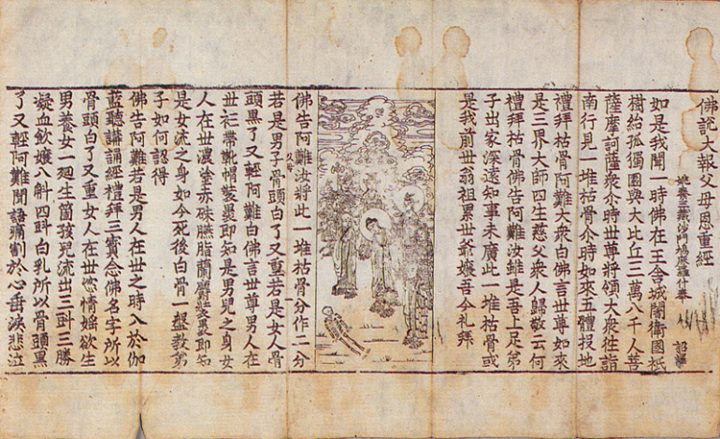 佛說大報父母恩重經
姚秦三藏沙門鳩摩羅什奉 詔譯
如是我聞一時佛在王舍城闍衛國祇
樹給孤獨園與大比丘三萬八千人菩
薩摩訶薩衆尒時世尊將領大衆往詣
南行見一堆枯骨尒時如來五體投地
禮拜枯骨阿難大衆白佛言世尊如來
是三界大師四生慈父衆人歸敬云何
禮拜枯骨佛告阿難汝雖是吾上足弟
子出家深遠知事未廣此一堆枯骨或
是我前世翁祖累世爺孃吾今礼拜
佛告阿難汝將此一堆枯骨分作二分
若是男子骨頭白了又重若是女人骨
頭黑了又輕阿難白佛言世尊男人在
世衫帶靴帽裝裹即知是男兒之身女
人在世濃塗赤硃臙脂蘭麝裝裹即知
是女流之身如今死後白骨一盤教弟
子如何認得
佛告阿難若是男人在世之時入於伽
藍聽講誦經禮拜三寶念佛名字所以
骨頭白了又重女人在世恣情婬欲生
男養女一廻生箇孩兒流出三㪷三勝
凝血飲孃八斛四㪷白乳所以骨頭黑
了又輕阿難聞語痛割於心垂淚悲泣